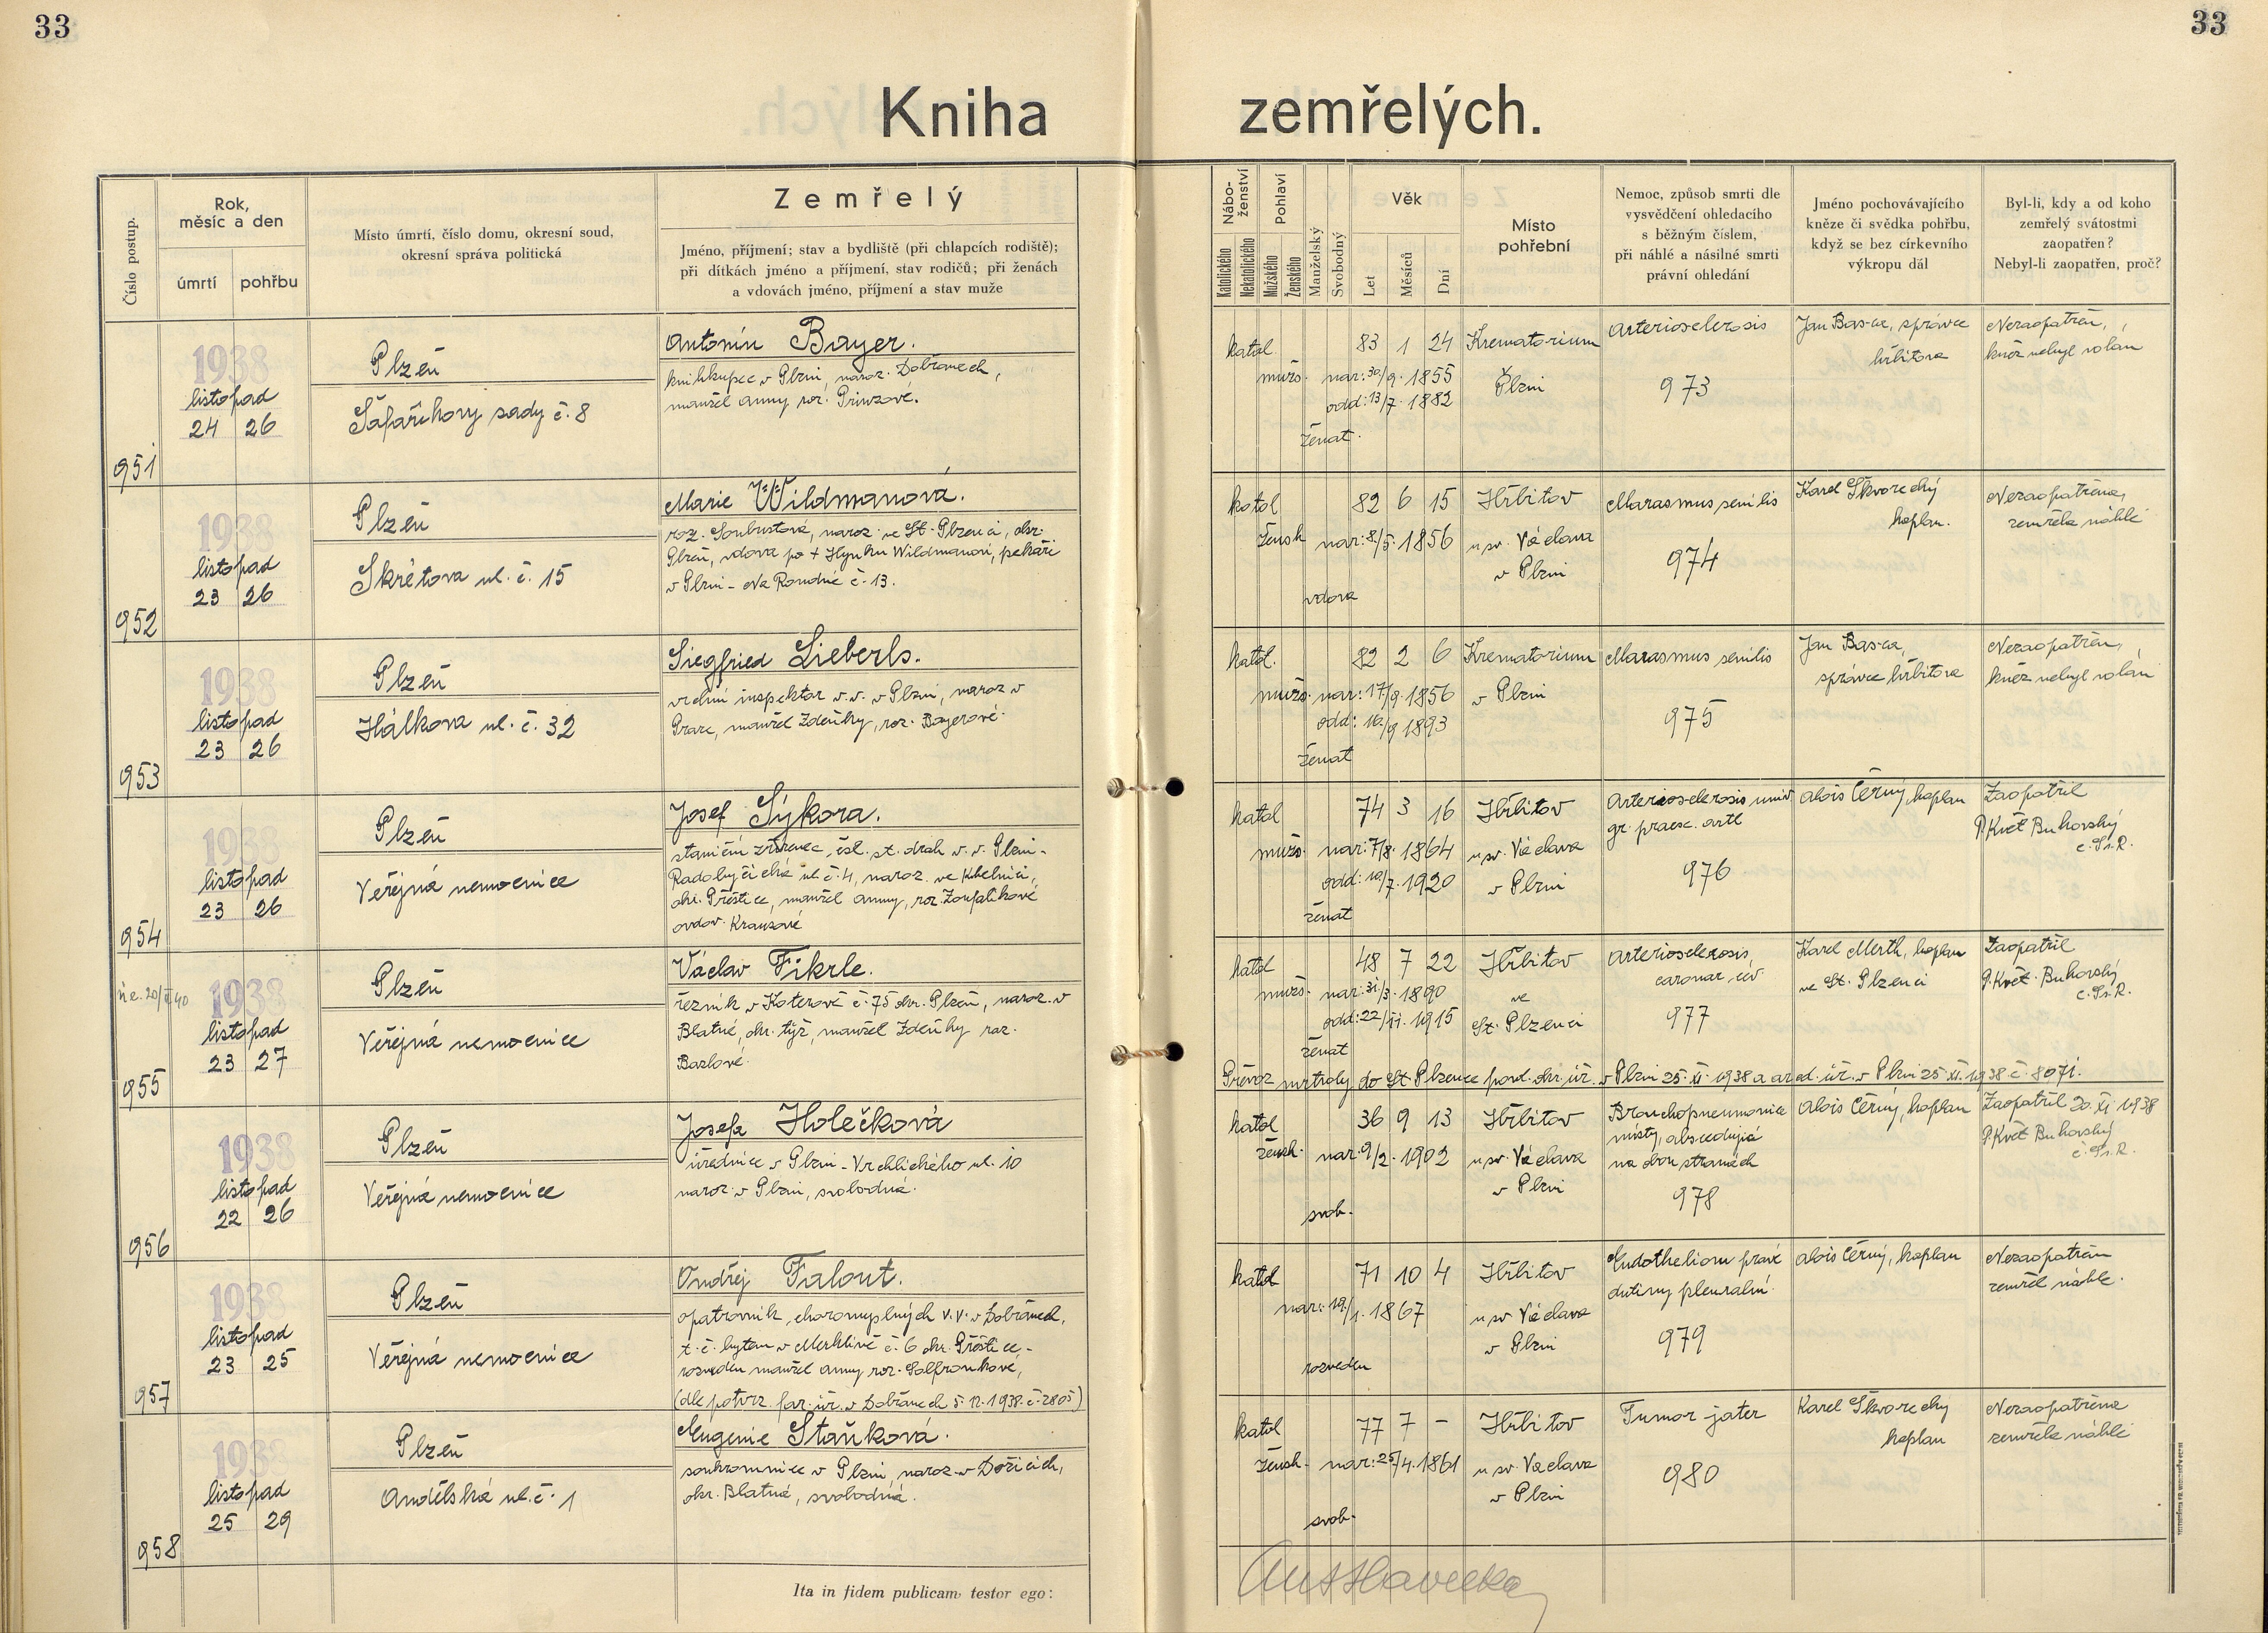 33
33
Kniha zemřelých.
Číslo postup.
Rok,
měsíc a den
úmrtí
pohřbu
Místo úmrtí, číslo domu, okresní soud,
okresní správa politická
Zemřelý
Jméno, příjmení; stav a bydliště (při chlapcích rodiště);
při dítkách jméno a příjmení, stav rodičů; při ženách
a vdovách jméno, příjmení a stav muže
Nábo-
ženství
Katolického
Nekatolického
Pohlaví
Mužského
Ženského
Manželský
Svobodný
Věk
Let
Měsíců
Dní
Místo
pohřební
Nemoc, způsob smrti dle
vysvědčení ohledacího
s běžným číslem,
při náhlé a násilné smrti
právní ohledání
Jméno pochovávajícího
kněze či svědka pohřbu,
když se bez církevního
výkropu dál
Byl-li, kdy a od koho
zemřelý svátostmi
zaopatřen?
Nebyl-li zaopatřen, proč?
951
1938
listopad
24 26
Plzeň
Šafaříkovy sady č. 8
Antonín Bayer.
knihkupec v Plzni, naroz. Dobřanech,
manžel Anny roz. Prinzové.
katol
mužs.
83 1 24
nar: 30/9. 1855
odd: 13/7. 1882
ženat.
Krematorium
Plzni
Arteriosclerosis
973
Jan Bas-ca, správce
hřbitova
Nezaopatřen,
kněz nebyl volán
952
1938
listopad
23 26
Plzeň
Škrétova ul. č. 15
Marie Wildmanová.
roz. Soukustová, naroz. ve St. Plzenci, okr.
Plzeň, vdova po + Hynku Wildmanovi, pekaři
v Plzni - Na Roudné č. 13.
katol
žensk
82 6 15
nar: 8/5. 1856
vdova
Hřbitov
u sv. Václava
v Plzni
Marasmus senilis
974
Karel Škvorecký
kaplan.
Nezaopatřena,
zemřela náhle
953
1938
listopad
23 26
Plzeň
Hálkova ul. č. 32
Siegfried Lieberls.
vrchní inspektor v.v. v Plzni, naroz v
Praze, manžel Zdeňky, roz. Bayerové.
katol.
mužs.
82 2 6
nar: 17/9. 1856
odd: 16/9 1893
ženat
Krematorium
v Plzni
Marasmus senilis
975
Jan Bas-ca,
správce hřbitova
Nezaopatřen,
kněz nebyl volán
954
1938
listopad
23 26
Plzeň
Veřejná nemocnice
Josef Sýkora.
staniční zřízenec, čsl. st. drah v. v. Plzni -
Radobyčická ul. č. 4, naroz. ve Kbelnici,
okr. Přeštice, manžel Anny, roz. Zoufalíkové
ovdov. Krausové
katol
mužs.
74 3 16
nar: 7/8. 1864
odd: 10/7. 1920
ženat
Hřbitov
u sv. Václava
v Plzni
Arteriosclerosis univ
gr. praesc. artl
976
Alois Černý, kaplan
Zaopatřil
P. Květ Bukovský
c. Ss. R.
955
1938
listopad
23 27
Plzeň
Veřejná nemocnice
Václav Fikrle.
řezník v Koterově č. 75 okr. Plzeň, naroz. v
Blatné, okr. týž, manžel Zdeňky roz.
Bazlové.
katol
mužs.
48 7 22
nar: 31/3. 1890
odd: 22/11. 1915
ženat
Hřbitov
ve
St. Plzenci
Arteriosclerosis
coronar. civ
977
Karel Merth, kaplan
ve St. Plzenci
Zaopatřil
P. Květ. Bukovský
c. Ss. R.
Převoz mrtvoly do St Plzence povol. okr. úř. v Plzni 25. XI. 1938 a arcid. úř. v Plzni 25. XI. 1938 č. 8071.
956
1938
listopad
22 26
Plzeň
Veřejná nemocnice
Josefa Holečková
úřednice v Plzni - Vrchlického ul. 10
naroz. v Plzni, svobodná.
katol
žensk.
36 9 13
nar: 9/2. 1902
svob.
Hřbitov
u sv. Václava
v Plzni
Bronchopneumonie
místy, abscedující
na obou stranách
978
Alois Černý, kaplan
Zaopatřil 20. XI 1938
P. Květ Bukovský
c. Ss. R.
957
1938
listopad
23 25
Plzeň
Veřejná nemocnice
Ondřej Falout.
opatrovník choromyslných v. v. v Dobřanech,
t. č. bytem v Merklíně č. 6 okr. Přeštice, -
rozveden manžel Anny roz. Solfronkové,
(dle potvrz. far. úř. v Dobřanech 5. 12. 1938. č. 2805)
katol
71 10 4
nar: 19/1. 1867
rozveden
Hřbitov
u sv. Václava
v Plzni
Endotheliom pravé
dutiny pleuralní.
979
Alois Černý, kaplan
Nezaopatřen
zemřel náhle.
958
1938
listopad
25 29
Plzeň
Andělská ul. č. 1
Eugenie Staňková.
soukromnice v Plzni, naroz. v Dožicích,
okr. Blatná, svobodná.
katol
žensk.
77 7 -
nar: 25/4. 1861
svob.
Hřbitov
u sv. Václava
v Plzni
Tumor jater
980
Karel Škvorecký
kaplan
Nezaopatřena
zemřela náhle
Ita in fidem publicam testor ego: